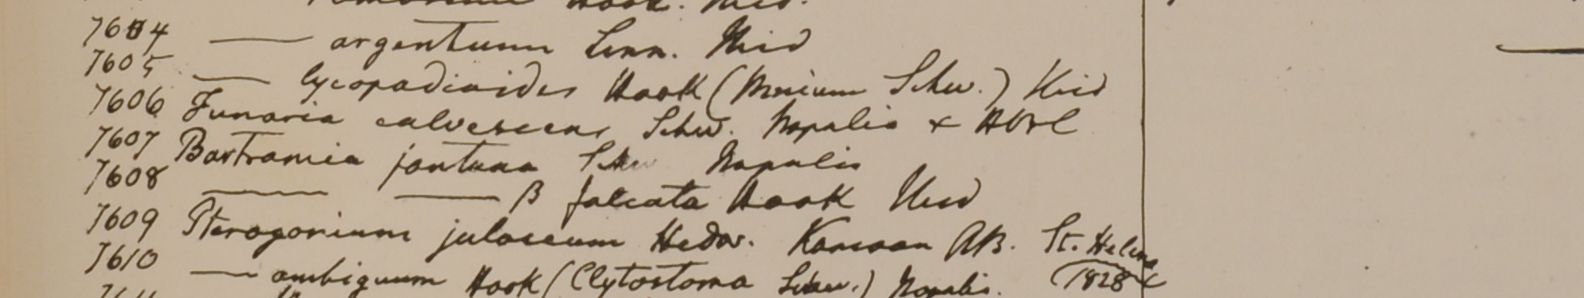 Hook. Ibid.
7604 —— argentum Linn. Ibid
7605 —— lycopadioides Hook (Mnium Schw.) Ibid
7606 Funaria calvescens Schw. Napalia & HBC
7607 Bartramia fontana Schw Napalis
7608 —— —— β falcata Hook Ibid
7609 Pterogonium julaceum Hedw. Kamaon RB. St. Helena
7610 —— ambiguum Hook (Clytostoma Schw.) Napalis. (1828 &